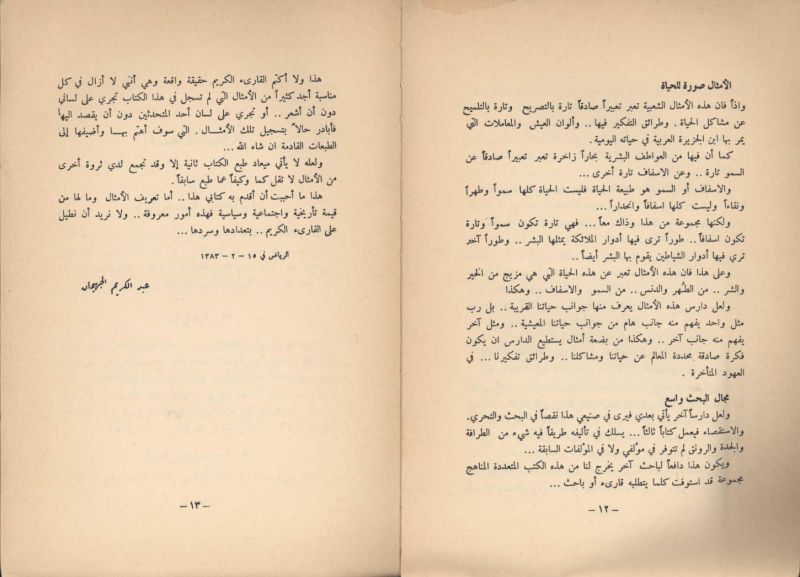 الأمثال صورة للحياة
واذاً فان هذه الأمثال الشعبية تعبر تعبيراً صادقاً تارة بالتصريح وتارة بالتلميح
عن مشاكل الحياة . وطرائق التفكير فيها .. وألوان العيش والمعاملات التي
يمر بها ابن الجزيرة العربية في حياته اليومية .
كما أن فيها من العواطف البشرية بحاراً زاخرة تعبر تعبيراً صادقاً عن
السمو تارة .. وعن الاسفاف تارة أخرى ...
والاسفاف أو السمو هو طبيعة الحياة فليست الحياة كلها سمواً وطهراً
ونقاءاً وليست كلها اسفافاً وانحداراً ...
ولكنها مجموعة من هذا وذاك معاً... فهي تارة تكون سمواً وتارة
تكون اسفافاً .. طوراً ترى فيها أدوار الملائكة يمثلها البشر .. وطوراً آخر
تري فيها أدوار الشياطين يقوم بها البشر أيضاً ..
وعلى هذا فان هذه الأمثال تعبر عن هذه الحياة التي هي مزيج من الخير
والشر .. من الطهر والدنس .. من السمو والاسفاف .. وهكذا
ولعل دارس هذه الأمثال يعرف منها جوانب حياتنا القريبة .. بل رب
مثل واحد يفهم منه جانب هام من جوانب حياتنا المعيشية .. ومثل آخر
يفهم منه جانب آخر .. وهكذا من بضعة أمثال يستطيع الدارس ان يكون
فكرة صادقة محددة المعالم عن حياتنا ومشاكلنا .. وطرائق تفكيرنا ... في
العهود المتأخرة .
مجال البحث واسع
ولعل دارساً آخر يأتي بعدي فيرى في صنيعي هذا نقصاً في البحث والتحري.
والاستقصاء فيعمل كتاباً ثالثاً ... يسلك في تأليفه طريقاً فيه شيء من الطرافة
والجدة والرونق لم تتوفر في مؤلفي ولا في المؤلفات السابقة ...
ويكون هذا دافعاً لباحث آخر يخرج لنا من هذه الكتب المتعددة المناهج
مجموعة قد استوفت كلما يتطلبه قارىء أو باحث ...
– ١٢ –
هذا ولا أكتم القارىء الكريم حقيقة واقعة وهي أنني لا أزال في كل
مناسبة أجد كثيراً من الأمثال التي لم تسجل في هذا الكتاب تجري على لساني
دون أن أشعر .. أو تجري على لسان أحد المتحدثين دون أن يقصد اليها
فأبادر حالاً بتسجيل تلك الأمثـــال . التي سوف أهتم بهــا وأضيفها إلى
الطبعات القادمة ان شاء الله ...
ولعله لا يأتي ميعاد طبع الكتاب ثانية إلا وقد تجمع لدي ثروة أخرى
من الأمثال لا تقل كما وكيفاً عما طبع سابقاً .
هذا ما أحببت أن أقدم به كتابي هذا .. أما تعريف الأمثال وما لها من
قيمة تأريخية واجتماعية وسياسية فهذه أمور معروفة .. ولا نريد أن نطيل
على القارىء الكريم .. بتعدادها وسردها ...
الرياض في ١٥ – ٢ – ١٣٨٣
عبد الكريم الجهيمان
– ١٣ –